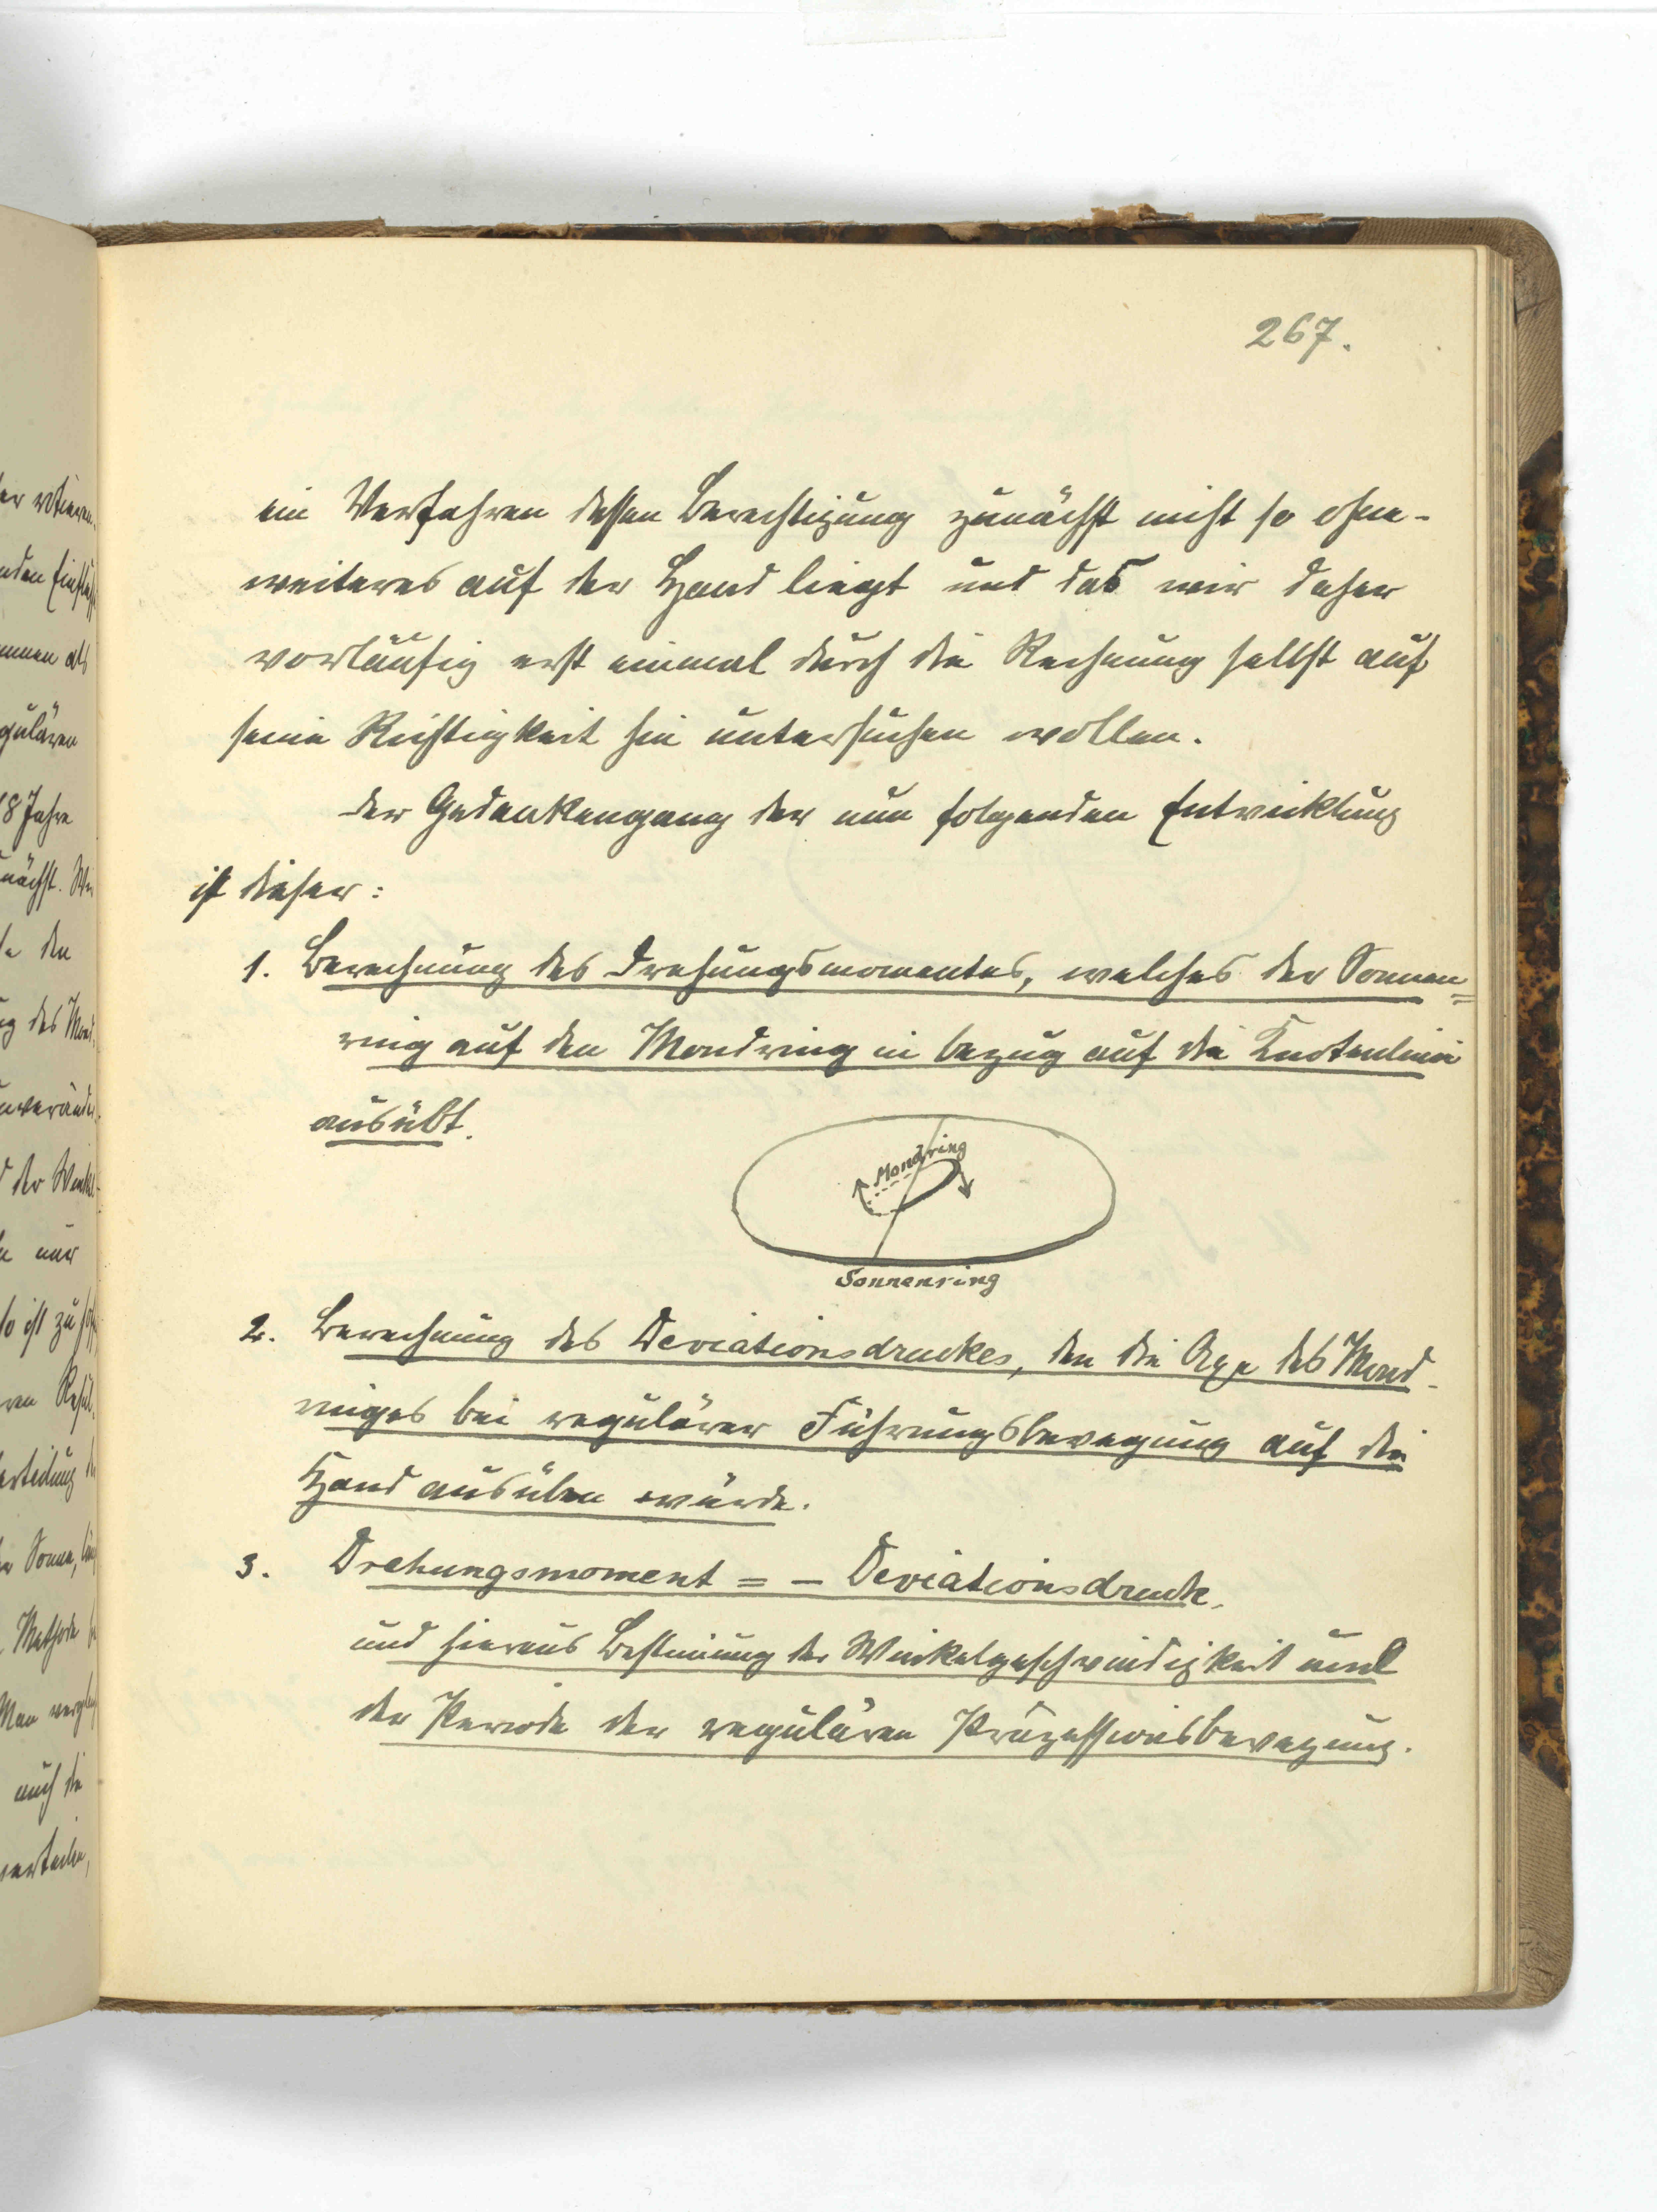 267.
ein Verfahren dessen Berechtigung zunächst nicht so ohne-
weiteres auf der Hand liegt und das wir daher
vorläufig erst einmal durch die Rechnung selbst auf
seine Richtigkeit hin untersuchen wollen.
Der Gedankengang der nun folgenden Entwicklung
ist dieser:
1. Berechnung des Drehungsmomentes, welches der Sonnen=
ring auf den Mondring in bezug auf die Knotenlinie
ausübt.
Mondring
Sonnenring
2. Berechnung des Deviationsdruckes, den die Axe des Mond-
ringes bei regulärer Führungsbewegung auf die
Hand ausüben würde.
3. Drehungsmoment = - Deviationsdruck.
und hieraus Bestimung der Winkelgeschwindigkeit und
der Periode der regulären Präzessionsbewegung.
18 Jahre
nächst.
den
des Mond
nur
ist zu
Sonne,
Methode
Man
auch die